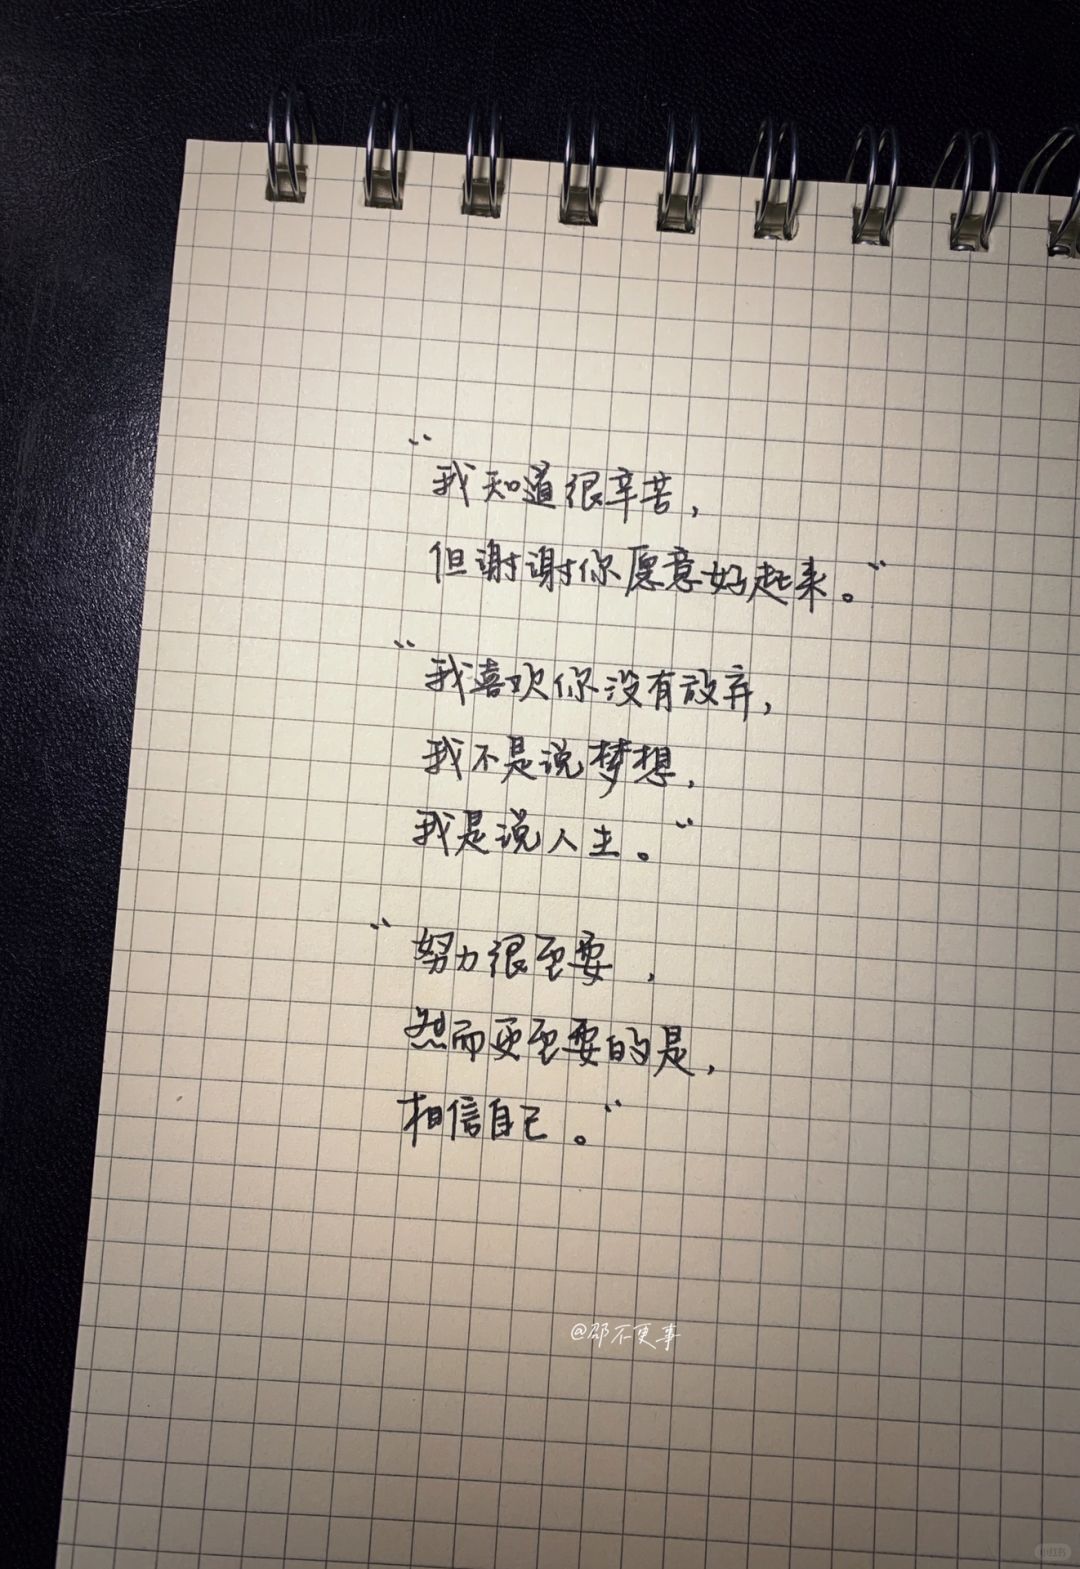 “我知道很辛苦，
但谢谢你愿意好起来。”
“我喜欢你没有放弃，
我不是说梦想，
我是说人生。”
“努力很重要，
然而更重要的是，
相信自己。”
@邵不更事
小红书